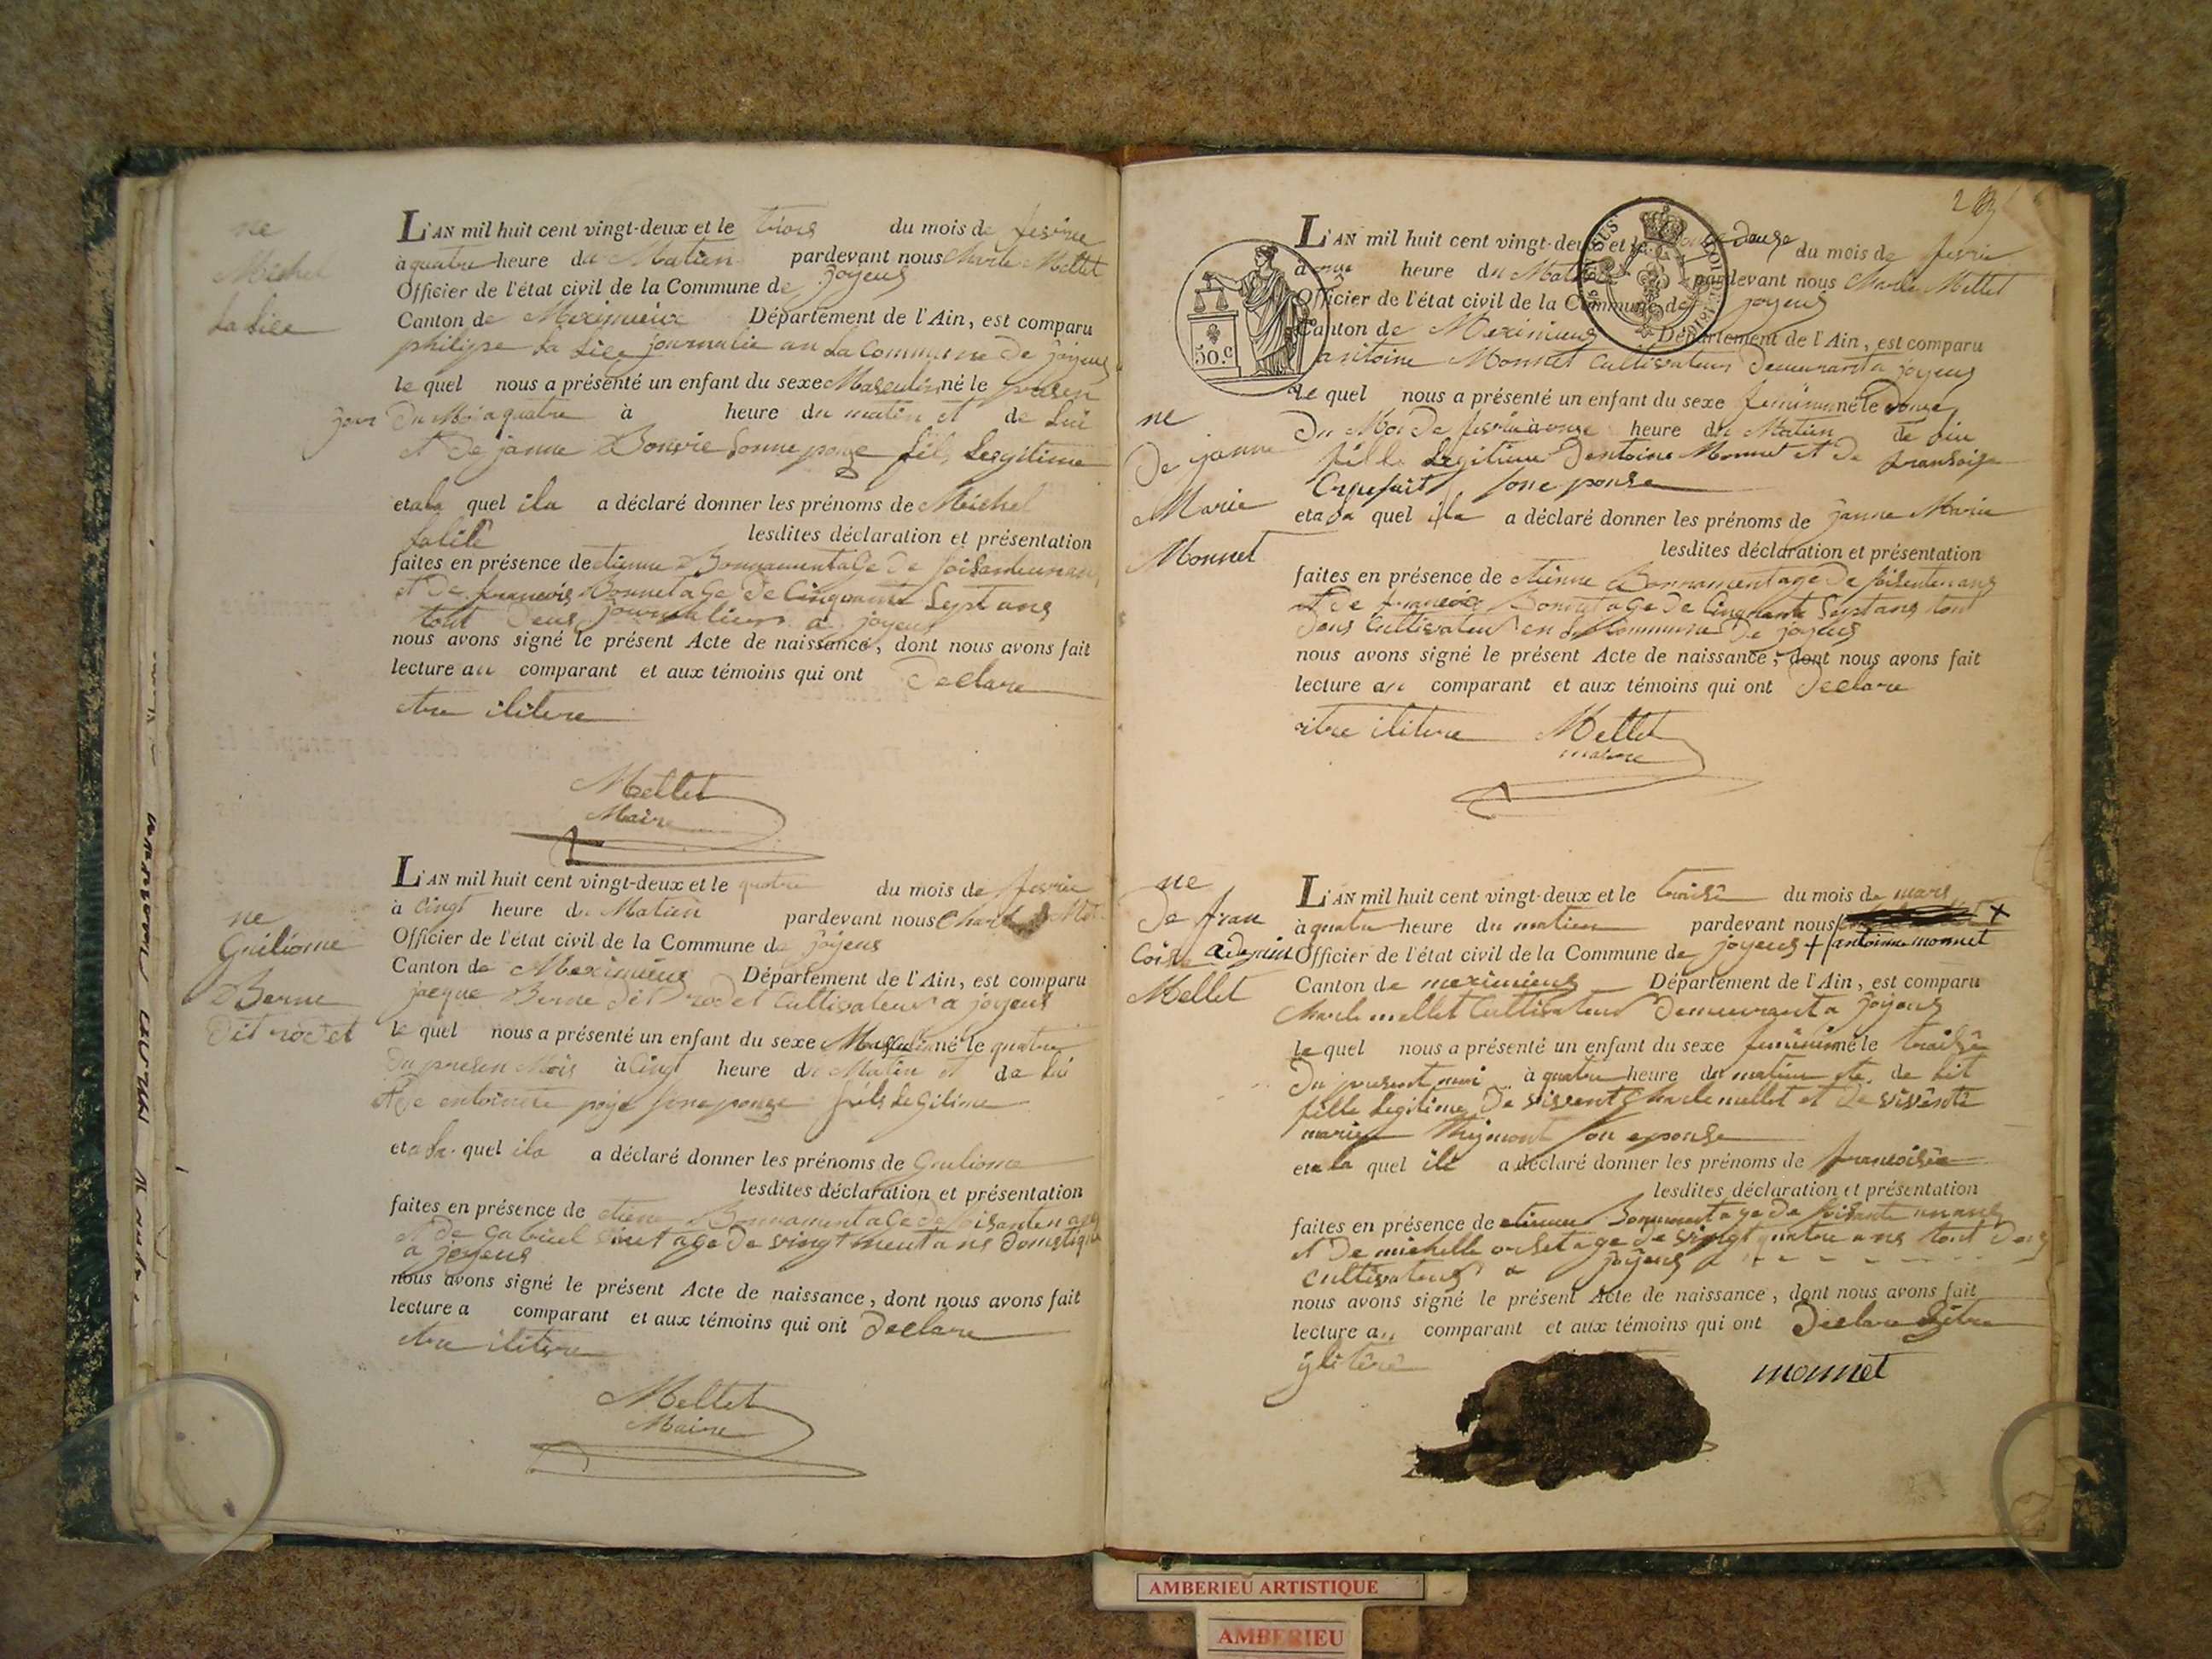 ne
Michel
La Lice
L'AN mil huit cent vingt-deux et le trois du mois de fevrie
à quatre heure du Matien pardevant nous Charle Mellet
Officier de l'état civil de la Commune de joyeus
Canton de Meximieux Département de l'Ain, est comparu
philipe La Lice journalie an La Commune De joyeus
le quel nous a présenté un enfant du sexe Masculin né le presen
jour du Moi a quatre à heure du matin et de Lui
et De janne Bonvie sonne pouze fils Legitime
et a la quel il a a déclaré donner les prénoms de Meichel
Lalice lesdites déclaration et présentation
faites en présence de etienne Bonnament age De soisante unans
et De francois Bonnet age De Cinquante Sept ans
tout Deus journaliers a joyeus
nous avons signé le présent Acte de naissance, dont nous avons fait
lecture au comparant et aux témoins qui ont Declare
etre ilitere
Mellet
Maire
ne
Guiliome
Berne
Dit rodet
L'AN mil huit cent vingt-deux et le quatre du mois de fevrie
à Cingt heure du Matien pardevant nous Charle
Officier de l'état civil de la Commune de joyeus
Canton de Meximieus Département de l'Ain, est comparu
jacque Berne Dit rodet Cultivateur a joyeus
le quel nous a présenté un enfant du sexe Masculin né le quatre
Du presen Mois à Cingt heure du Matin et de Lui
et De entoinette poye sone pouze fils Legitime
et a la quel il a a déclaré donner les prénoms de Guiliome
lesdites déclaration et présentation
faites en présence de etiene Bonnament age de soisanten ans
et De Gabriel age De vingt neut ans Domestique
a joyeus
nous avons signé le présent Acte de naissance, dont nous avons fait
lecture a comparant et aux témoins qui ont Declare
etre ilitere
Mellet
Maire
50.c
ne
De janne
Marie
Monnet
L'AN mil huit cent vingt-deux et le douze du mois de fevrie
à onze heure du Matien pardevant nous Charle Mellet
Officier de l'état civil de la Commune de joyeus
Canton de Meximieus Département de l'Ain, est comparu
antoine Monnet Cultivateur Demeurant a joyeus
le quel nous a présenté un enfant du sexe feminin né le Douze
Du Moi De fevrie à onze heure du Matien de Lui
fille Legitime Dentoine Monnet et De fransoise
sone pouse
et a la quel il a a déclaré donner les prénoms de janne Marie
lesdites déclaration et présentation
faites en présence de etienne Bonnament age De soisentun ans
et De francois Bonnet age De Cinquante Sept ans tout
Deus Cultivateur en La Commune De joyeus
nous avons signé le présent Acte de naissance, dont nous avons fait
lecture au comparant et aux témoins qui ont Declare
etre ilitere Mellet
maire
ne
De fran
Coise
Mellet
L'AN mil huit cent vingt-deux et le traise du mois de mars
à quatre heure du matien pardevant nous
Officier de l'état civil de la Commune de joyeus + antoine monnet
Canton de meximieus Département de l'Ain, est comparu
Charle mellet Cultivateur Demeurant a joyeus
le quel nous a présenté un enfant du sexe feminin né le traise
Du present moi à quatre heure du matien de
fille Legitime De Charle mellet et De
marie son epouse
et a la quel il a a déclaré donner les prénoms de francoise
lesdites déclaration et présentation
faites en présence de etienne Bonnament age De soisante unans
et De michelle orset age de vingt quatre ans tout Deus
cultivateurs a joyeus
nous avons signé le présent Acte de naissance, dont nous avons fait
lecture au comparant et aux témoins qui ont Declare
monnet
AMBERIEU ARTISTIQUE
AMBERIEU